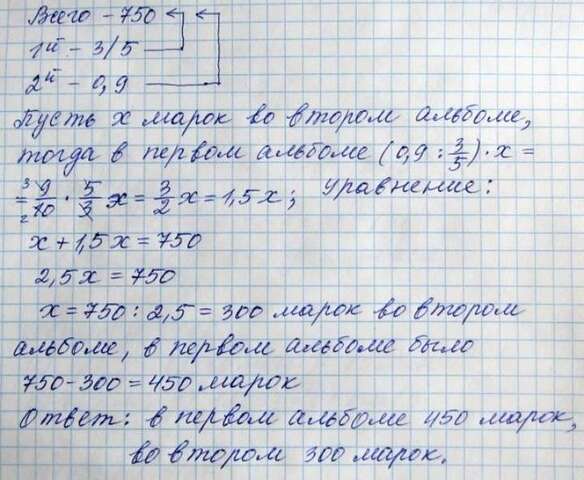 Всего – 750
1й – 3/5
2й – 0,9
Пусть х марок во втором альбоме,
тогда в первом альбоме (0,9 : 3/5) · х =
= 9/10 · 5/3 х = 3/2 х = 1,5х ; Уравнение:
х + 1,5х = 750
2,5х = 750
х = 750 : 2,5 = 300 марок во втором
альбоме, в первом альбоме было
750 - 300 = 450 марок
Ответ: в первом альбоме 450 марок,
во втором 300 марок.